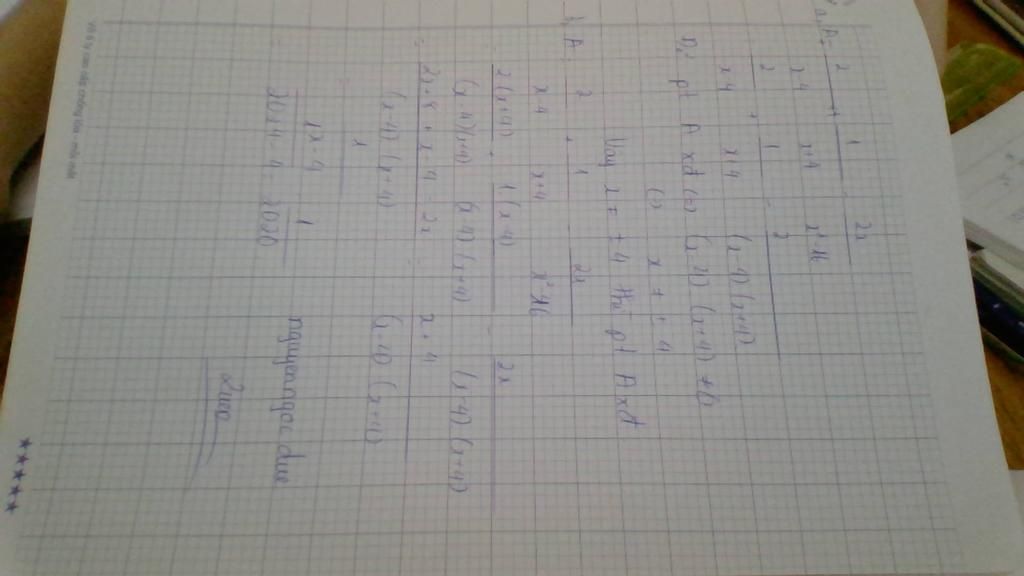 a. A = 2/(x-4) + 1/(x+4) - 2x/(x²-16)
= 2/(x-4) + 1/(x+4) - 2/((x-4)(x+4))
Để pt A xđ (=) (x-4) (x+4) ≠ 0
(=) x ≠ ± 4
Vậy x ≠ ± 4 thì pt A xđ
b, A = 2/(x-4) + 1/(x+4) 2x/(x²-16)
= 2(x+4)/((x-4)(x+4)) + 1(x-4)/((x-4)(x+4)) - 2x/((x-4)(x+4))
= (2x+8+x-4-2x)/((x-4)(x+4)) = (x+4)/((x-4)(x+4))
= 1/(x-4)
1/2020
nguyenngoc duc